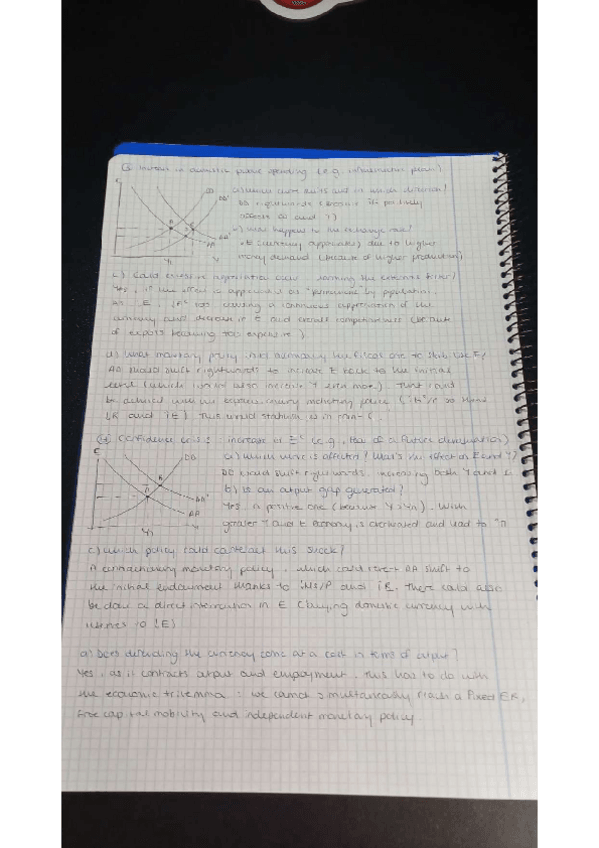 Increase in domestic public spending (e.g. infrastructure plan)
a) which curve shifts and in which direction?
DD rightwards
affects DD and Y)
what happens to the exchange rate?
↓E (currency appreciates) due to higher
money demand (because of higher production)
E
DD
DD'
AA
c) Could excessive appreciation occur harming the external sector?
Yes, if the effect is appreciated as "permanent" by population.
causing a continuous appreciation of the
currency and overall competitiveness (because
of exports becoming too expensive).
d) What monetary policy
AA should shift rightwards to increase E back to the initial
level (which would also increase Y even more). That could
be achieved with an expansionary monetary policy
and ↑E). This would stabilise
Confidence crisis: increase in Eᵉ (e.g., fear of a future devaluation)
E
DD
AA'
AA
Y
a) which curve is affected? What's the effect on E and Y?
should shift rightwords, increasing both Y and E
b) Is an output gap generated?
Yes, a positive one (because Y>Yn). With
greater Y and E economy is overheated and lead to
c) which policy could contrast this shock?
A contractionary monetary policy, which could revert AA shift to
the initial endowment thanks to ↓MS/P and ↑R. There could also
be done a direct intervention in E (buying domestic currency with
reserves to ↓E)
d) Does defending the currency come at a cost in terms of output?
Yes, as it contracts output and employment. This has to do with
the economic trilemma: we cannot simultaneously reach a fixed ER,
free capital mobility and independent monetary policy.